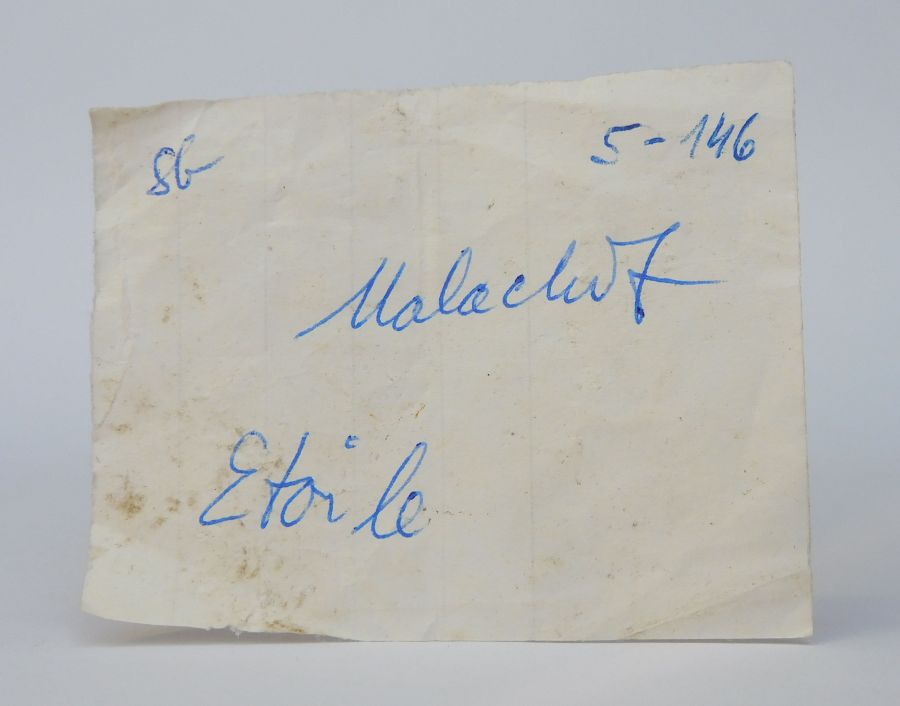 8b 5-146
Malachit
Etoile